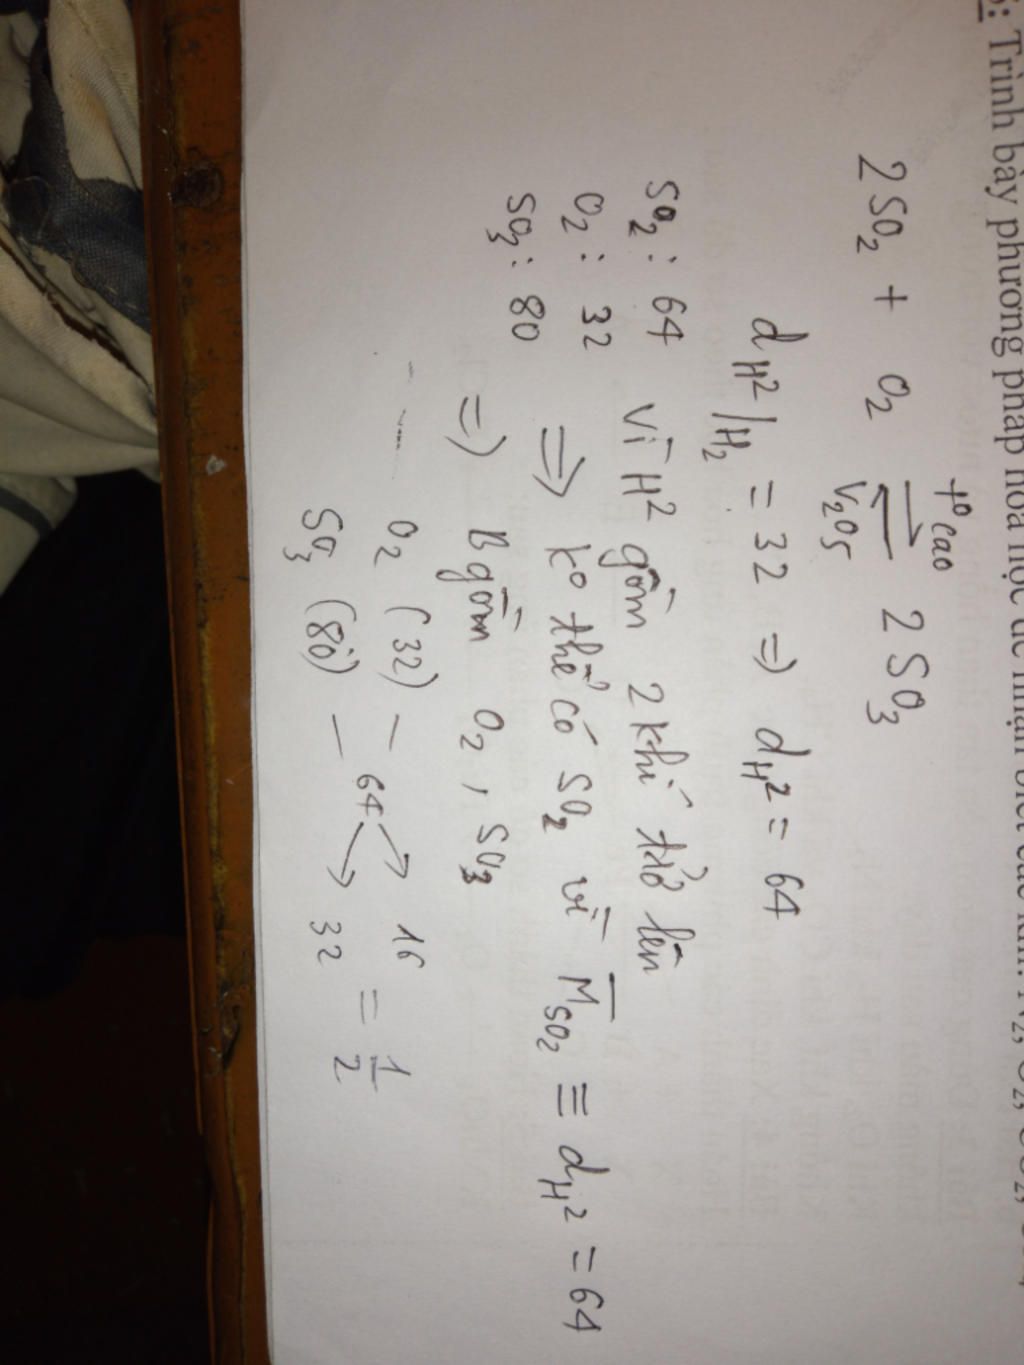 : Trình bày phương pháp hóa học để nhận biết các khí: N2, O2, CO2,
t° cao
2SO2 + O2 ⇌ 2SO3
V2O5
d H²/H2 = 32 => d H² = 64
SO2 : 64 Vì H² gồm 2 khí trở lên
O2 : 32 => ko thể có SO2 vì M̅ SO2 ≡ d H² = 64
SO3 : 80 => B gồm O2, SO3
O2 (32) – 16
64 = 1/2
SO3 (80) – 32